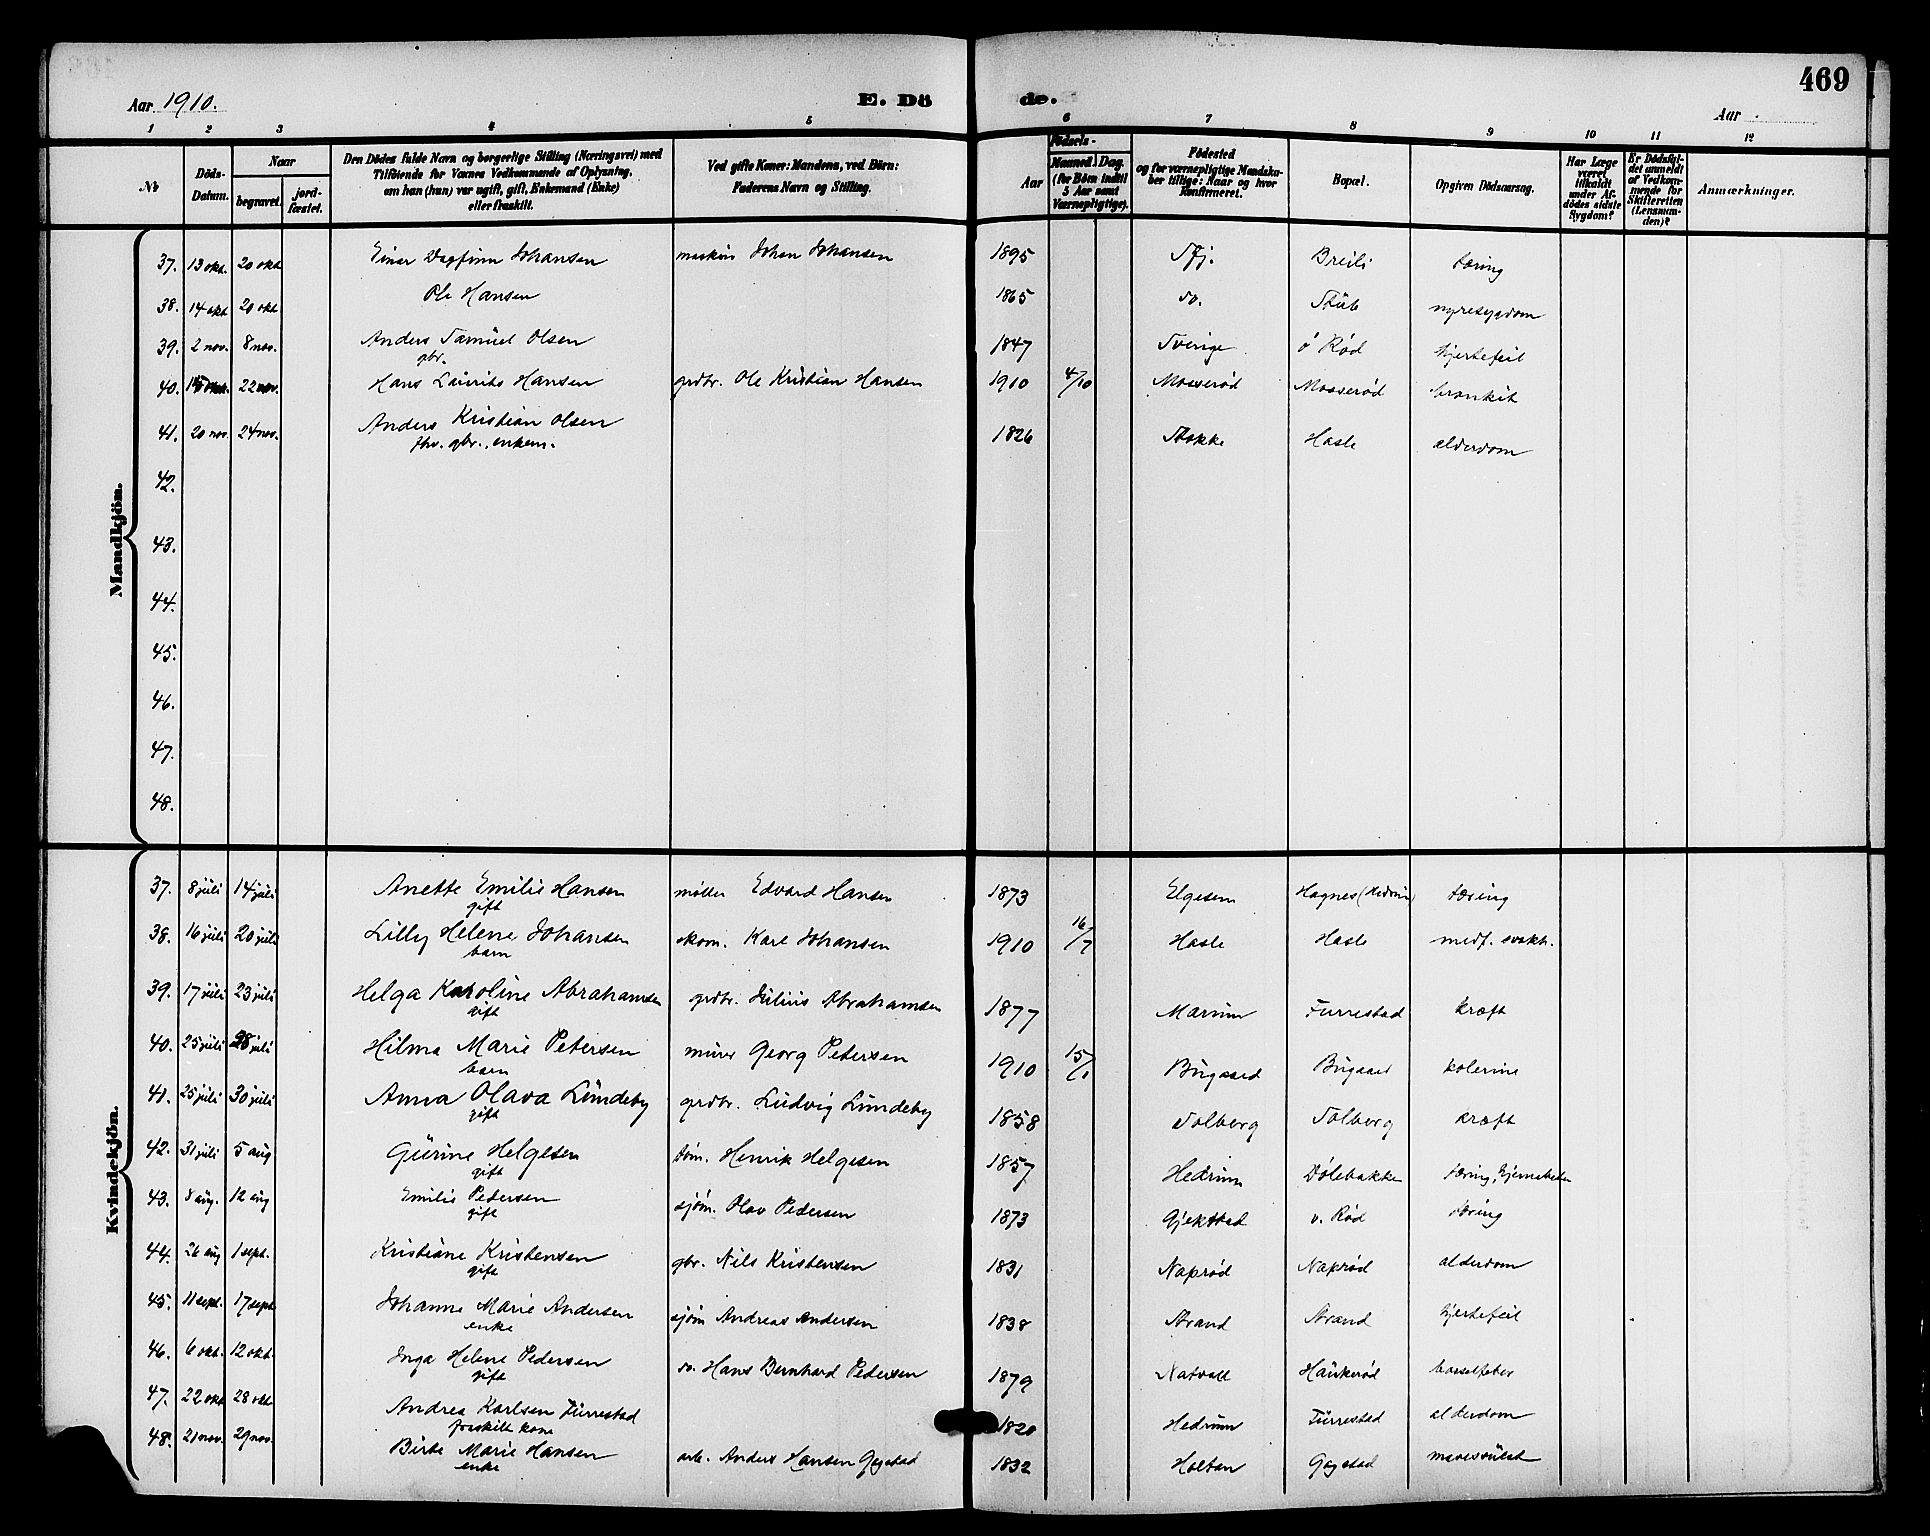 469
Aar 1910.
E. Dö de.
Aar
1 2 3 4 5 6 7 8 9 10 11 12
№ Döds-Datum. Naar begravet. jordfæstet. Den Dödes fulde Navn og borgerlige Stilling (Næringsvei) med Tilföiende for Voxnes Vedkommende af Oplysning, om han (hun) var ugift, gift, Enkemand (Enke) eller fraskilt. Ved gifte Koner: Mandens, ved Börn: Faderens Navn og Stilling. Födsels- Aar Maaned. Dag. (for Börn indtil 5 Aar samt Værnepligtige). Födested og for værnepligtige Mandskaber tillige: Naar og hvor Konfirmeret. Bopæl. Opgiven Dödsaarsag. Har Læge været tilkaldt under Afdödes sidste Sygdom? Er Dödsfaldet anmeldt af Vedkommende for Skifteretten (Lensmanden)? Anmærkninger.
Mandkjön.
37. 13 okt. 20 okt Einar Dagfinn Johansen maskin Johan Johansen 1895 Sfj. Breili tæring
38. 14 okt 20 okt Ole Hansen 1865 do. Stub nyresygdom
39. 2 nov. 8 nov. Anders Samuel Olsen 1847 Sverige ö Rød hjertefeil
gbr.
40. 15 22 nov. Hans Laurits Hansen grdbr. Ole Kristian Hansen 1910 4/10 Mosserød Mosserød bronkit
41. 20 nov. 24 nov. Anders Kristian Olsen 1826 Stokke Hasle alderdom
fhv. gbr., enkem.
42.
43.
44.
45.
46.
47.
48.
Kvindekjön.
37. 8 juli 14 juli Anette Emilie Hansen møller Edvard Hansen 1873 Elgesem Hagnes (Hedrum) tæring
gift
38. 16 juli 20 juli Lilly Helene Johansen skom. Karl Johansen 1910 16/7 Hasle Hasle medf. svakh.
barn
39. 17 juli 23 juli Helga Karoline Abrahamsen grdbr. Julius Abrahamsen 1877 Marum Furrestad kræft
gift
40. 25 juli 28 juli Hilma Marie Petersen murer Georg Petersen 1910 15/1 Bugaard Bugaard kolerine
barn
41. 25 juli 30 juli Anna Olava Lundeby grdbr. Ludvig Lundeby 1858 Solberg Solberg kræft
gift
42. 31 juli 5 aug Gurine Helgesen tøm. Henrik Helgesen 1857 Hedrum Dølebakken tæring,
gift
43. 8 aug. 12 aug Emilie Pedersen sjøm. Olav Pedersen 1873 Gjekstad v. Rød tæring
gift
44. 26 aug 1 sept. Kristiane Kristensen gbr. Nils Kristensen 1831 Naprød Naprød alderdom
gift
45. 11 sept. 17 sept. Johanne Marie Andersen sjøm Andreas Andersen 1838 Strand Strand hjertefeil
enke
46. 6 okt. 12 okt. Inga Helene Pedersen do. Hans Bernhard Pedersen 1879 Natvall Haukerød barselfeber
gift
47. 22 okt 28 okt Andrea Karlsen Furrestad 1820 Hedrum Furrestad alderdom
fraskilt kone
48. 21 nov. 29 nov. Birte Marie Hansen arb. Anders Hansen Gogstad 1832 Holtan Gogstad mavesvulst
enke